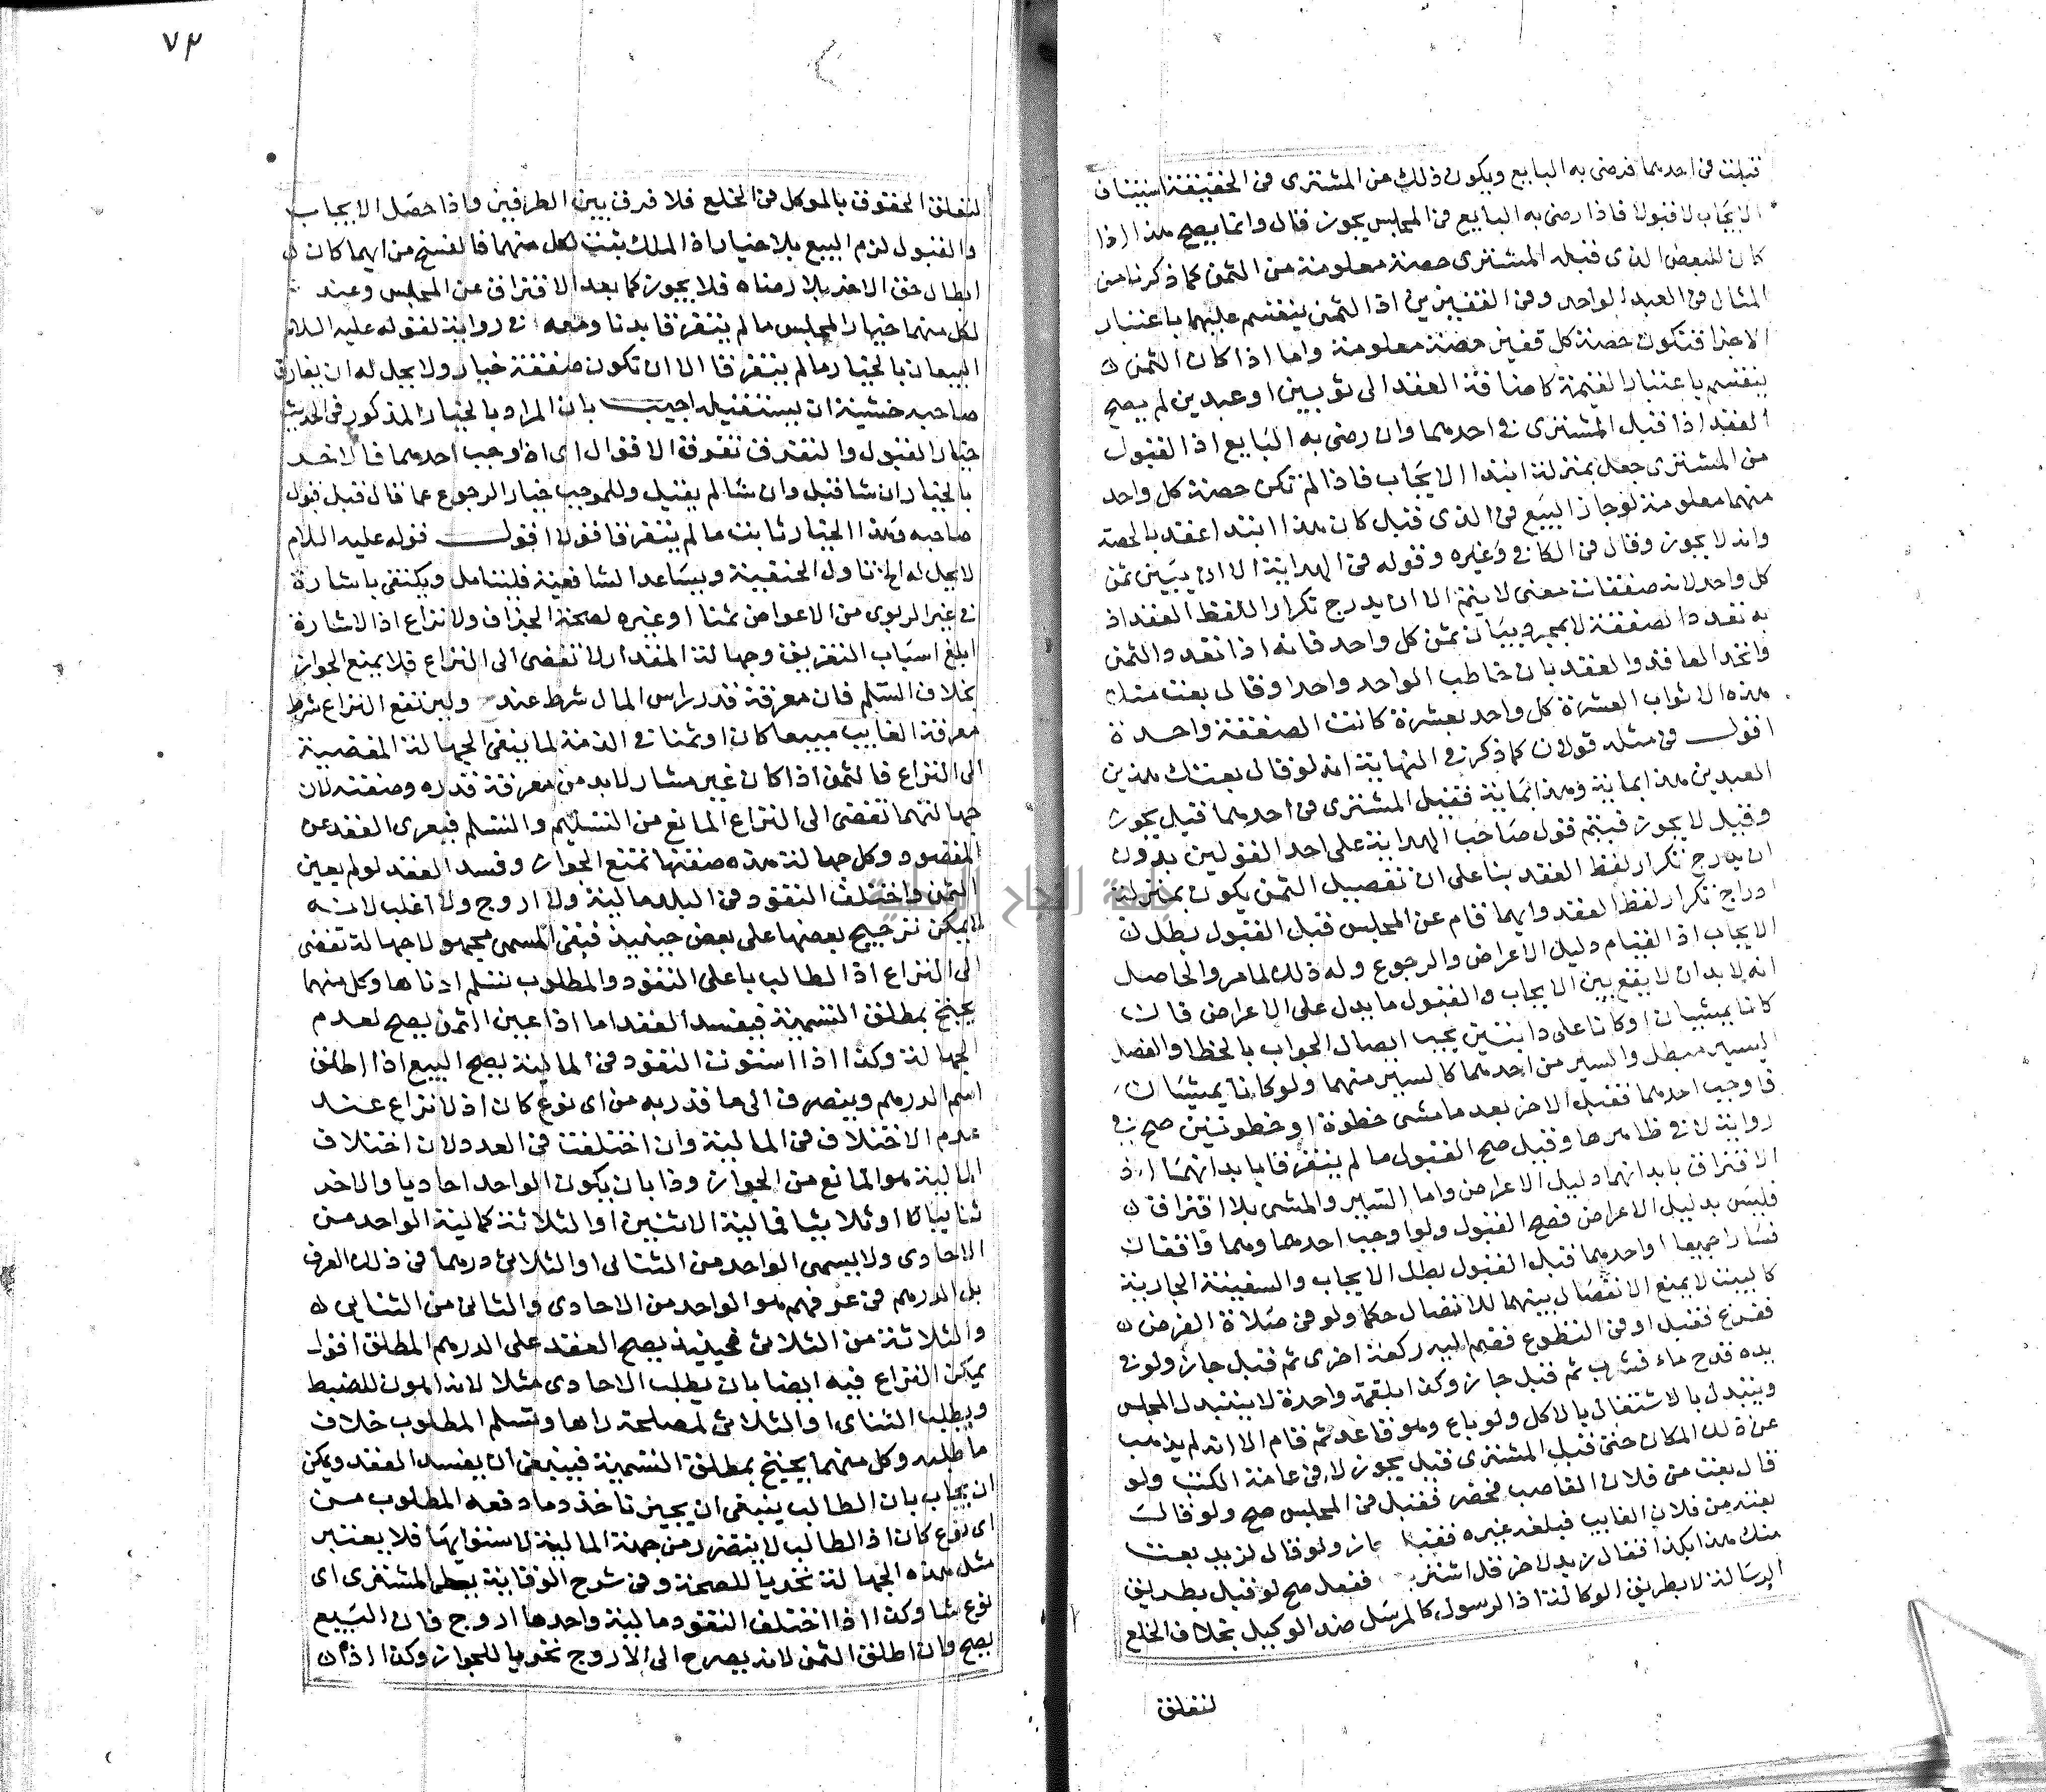 قبلت في احدهما فرضي به البايع ويكون ذلك من المشتري في الحقيقة استيناف
الايجاب لا قبولا فاذا رضي به البايع في المجلس يجوز قال وانما يصح هذا اذا
كان للبعض الذي قبله المشتري حصة معلومة من الثمن كما ذكرنا من
المثال في العبد الواحد وفي القفيزين اذ الثمن ينقسم عليهما باعتبار
الاجزا فتكون حصة كل قفيز حصة معلومة واما اذا كان الثمن
ينقسم باعتبار القيمة كاضافة العقد الى ثوبين او عبدين لم يصح
العقد اذا قبل المشتري في احدهما وان رضي به البايع اذ القبول
من المشتري جعل بمنزلة ابتدا الايجاب فاذا لم تكن حصة كل واحد
منهما معلومة لو جاز البيع في الذي قبل كان هذا ابتدا عقد بالحصة
وانه لا يجوز وقال في الكافي وغيره وقوله في الهداية الا ان يبين ثمن
كل واحد لانه صفقات معنى لا يتم الا ان يدرج تكرار اللفظ العقد اذ
به تعدد الصفقة لا بمجرد بيان ثمن كل واحد فانه اذا تعدد الثمن
واتخد العاقد والعقد بان خاطب الواحد واحدا وقال بعت منك
هذه الاثواب العشرة كل واحد بعشرة كانت الصفقة واحدة
اقول في مثله قولان كما ذكر في النهاية انه لو قال بعتك هذين
العبدين هذا بماية وهذا بماية فقبل المشتري في احدهما قيل يجوز
وقيل لا يجوز فيتم قول صاحب الهداية على احد القولين بدون
ان يدرج تكرار لفظ العقد بنا على ان تفصيل الثمن يكون بمنزلة
ادراج تكرار لفظ العقد وايهما قام عن المجلس قبل القبول بطل
الايجاب اذ القيام دليل الاعراض والرجوع وله ذلك لما مر والحاصل
انه لا بد ان لا يقع بين الايجاب والقبول ما يدل على الاعراض فان
كانا يمشيان او كانا على دابتين يجب ايصال الجواب بالخطا والفصل
اليسير مبطل والسير من احدهما كالسير منهما ولو كانا يمشيان
فاوجب احدهما فقبل الاخر بعد ما مشى خطوة او خطوتين صح في
رواية لا في ظاهرها وقيل صح القبول ما لم يتفرقا بابدانهما اذ
الافتراق بابدانهما دليل الاعراض واما السير والمشي بلا افتراق
فليس بدليل الاعراض فصح القبول ولو اوجب احدهما وهما واقفان
فسارا جميعا او احدهما قبل القبول بطل الايجاب والسفينة الجارية
كالبيت لا يمنع الانفصال بينهما للاتصال حكما ولو في صلاة الفرض
ففرغ فقبل او في التطوع فضم اليه ركعة اخرى ثم قبل جاز ولو في
يده قدح ماء فشرب ثم قبل جاز وكذا بلقمة واحدة لا يتبدل المجلس
ويتبدل بالاشتغال بالاكل ولو باع وهو قاعد ثم قام الا انه لم يذهب
عن ذلك المكان حتى قبل المشتري قيل يجوز لا في عامة الكتب ولو
قال بعت من فلان الغاصب فحضر فقبل في المجلس صح ولو قال
بعته من فلان الغايب فبلغه غيره فقبل جاز ولو قال لزيد بعت
منك هذا بكذا فقال زيد لاخر قل اشتريت ففعل صح لو قبل بطريق
الرسالة لا بطريق الوكالة اذ الرسول كالمرسل ضد الوكيل بخلاف الخلع
لتعلق
٧٣
لتعلق الحقوق بالموكل في الخلع فلا فرق بين الطرفين واذا حصل الايجاب
والقبول لزم البيع بلا خيار اذ الملك ثبت لكل منهما فالفسخ من ايهما كان
ابطال حق الاخر بلا رضاه فلا يجوز كما بعد الافتراق عن المجلس وعند
لكل منهما خيار المجلس ما لم يتفرقا بدنا ومعه في رواية لقوله عليه السلام
البيعان بالخيار ما لم يتفرقا الا ان تكون صفقة خيار ولا يحل له ان يفارق
صاحبه خشية ان يستقيله اجيب بان المراد بالخيار المذكور في الحديث
خيار القبول والتفرق تفرق الاقوال اي اذ اوجب احدهما فالاخر
بالخيار ان شا قبل وان شا لم يقبل وللموجب خيار الرجوع عما قال قبل قبول
صاحبه وهذا الخيار ثابت ما لم يتفرقا قولا اقول قوله عليه السلام
لا يحل له الخ تاول الحنفية ويساعد الشافعية فليتامل ويكتفى باشارة
في غير الربوي من الاعواض ثمنا او غيره لصحة الجزاف ولا نزاع اذ الاشارة
ابلغ اسباب التعريف وجهالة المقدار لا تفضي الى النزاع فلا يمنع الجواز
بخلاف السلم فان معرفة قدر راس المال شرط عند وليرتفع النزاع شرط
معرفة الغايب مبيعا كان او ثمنا في الذمة لما ينفي الجهالة المفضية
الى النزاع فالثمن اذا كان غير مشار لا بد من معرفة قدره وصفته لان
جهالتهما تفضي الى النزاع المانع من التسليم والتسلم فيعرى العقد عن
المقصود وكل جهالة هذه صفتها تمنع الجواز وفسد العقد لو لم يعين
الثمن واختلف النقود في البلد مالية ولا اروج ولا اغلب لانه
لا يمكن ترجيح بعضها على بعض حينيذ فبقي المسمى مجهولا جهالة تفضي
الى النزاع اذ الطالب باعلى النقود والمطلوب يسلم ادناها وكل منهما
يحتج بمطلق التسمية فيفسد العقد اما اذا عين الثمن يصح لعدم
الجهالة وكذا اذا استوت النقود في المالية يصح البيع اذا اطلق
اسم الدرهم وينصرف الى ما قدر به من اي نوع كان اذ لا نزاع عند
عدم الاختلاف في المالية وان اختلفت في العدد لان اختلاف
المالية هو المانع من الجواز وذا بان يكون الواحد احاديا والاخر
ثنايبا او ثلاثيا فمالية الاثنين او الثلاثة كمالية الواحد من
الاحادي ولا يسمى الواحد من الثنائي او الثلاثي درهما في ذلك العرف
بل الدرهم في عرفهم هو الواحد من الاحادي والثاني من الثنايي
والثلاثة من الثلاثي فحينيذ يصح العقد على الدرهم المطلق اقول
يمكن النزاع فيه ايضا بان يطلب الاحادي مثلا لانه اهون للضبط
ويطلب الثناي او الثلاثي لمصلحة راها وتسلم المطلوب خلاف
ما طلبه وكل منهما يحتج بمطلق التسمية فينبغي ان يفسد العقد ويمكن
ان يجاب بان الطالب ينبغي ان يجبر تاخذ وما دفعه المطلوب من
اي نوع كان اذ الطالب لا يتضرر من جهة المالية لاستوايهما فلا يعتبر
مثل هذه الجهالة تحريا للصحة وفي شرح الوقاية يعطي المشتري اي
نوع شا وكذا اذا اختلف النقود مالية واحدها اروج فان البيع
يصح وان اطلق الثمن لانه يصرح الى الاروج تحريا للجواز وكذا اذا
جامعة النجاح الوطنية